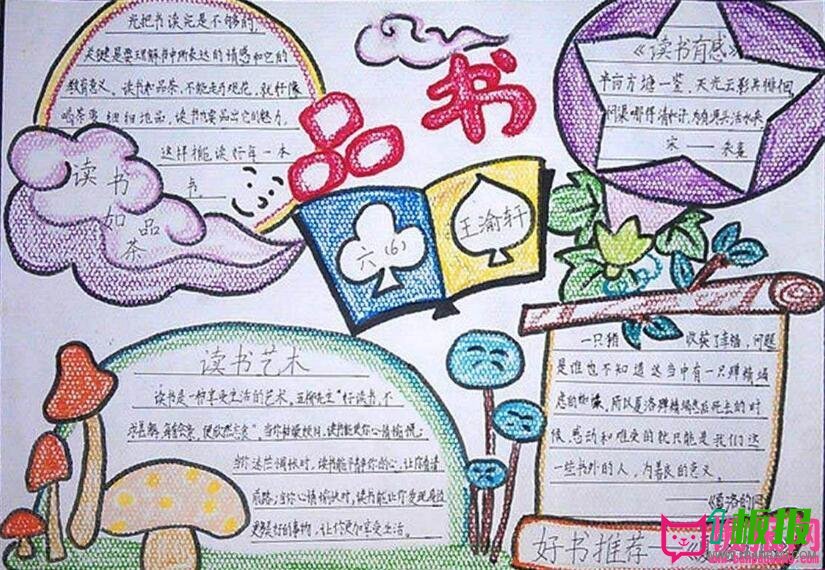 光把书读完是不够的,
关键是要理解书中所表达的情感和它的
教育意义。读书如品茶,不能走马观花,就好像
喝茶要细细地品,读书也要品出它的魅力,
这样才能读好每一本
书。
读书
如品
茶
品书
六(6)
王渝轩
《读书有感》
半亩方塘一鉴,天光云影共徘徊
问渠哪得清如许,为有源头活水来
宋——朱熹
读书艺术
读书是一种享受生活的艺术。五柳先生"好读书,不
求甚解,每有会意,便欣然忘食"。当你枯燥烦闷,读书能使你心情愉悦;
当你迷茫惆怅时,读书能平静你的心,让你看清
前路;当你心情愉快时,读书能让你发现身边
更美好的事物,让你更加享受生活。
一只猪 收获了幸福,问题
是谁也不知道这当中有一只殚精竭
虑的蜘蛛,所以夏洛殚精竭虑后死去的时
候,感动和难受的就只能是我们这
一些书外的人,为善良的意义。
好书推荐
板报